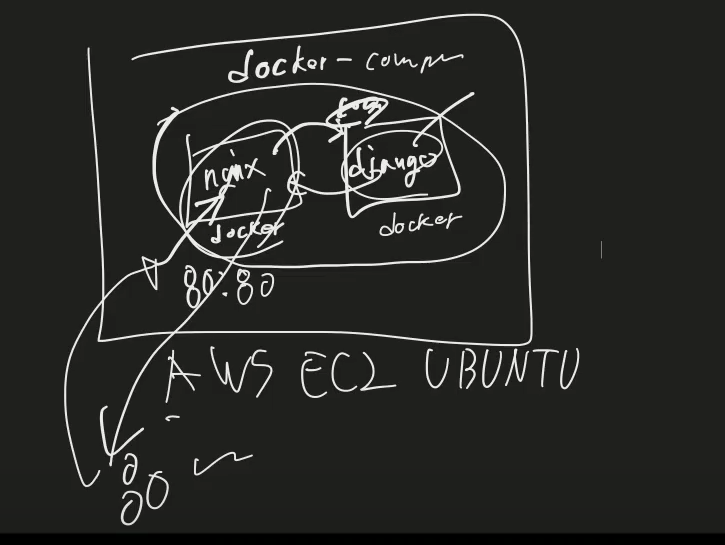 docker-compu
nginx django
docker docker
80:80
AWS EC2 UBUNTU
80